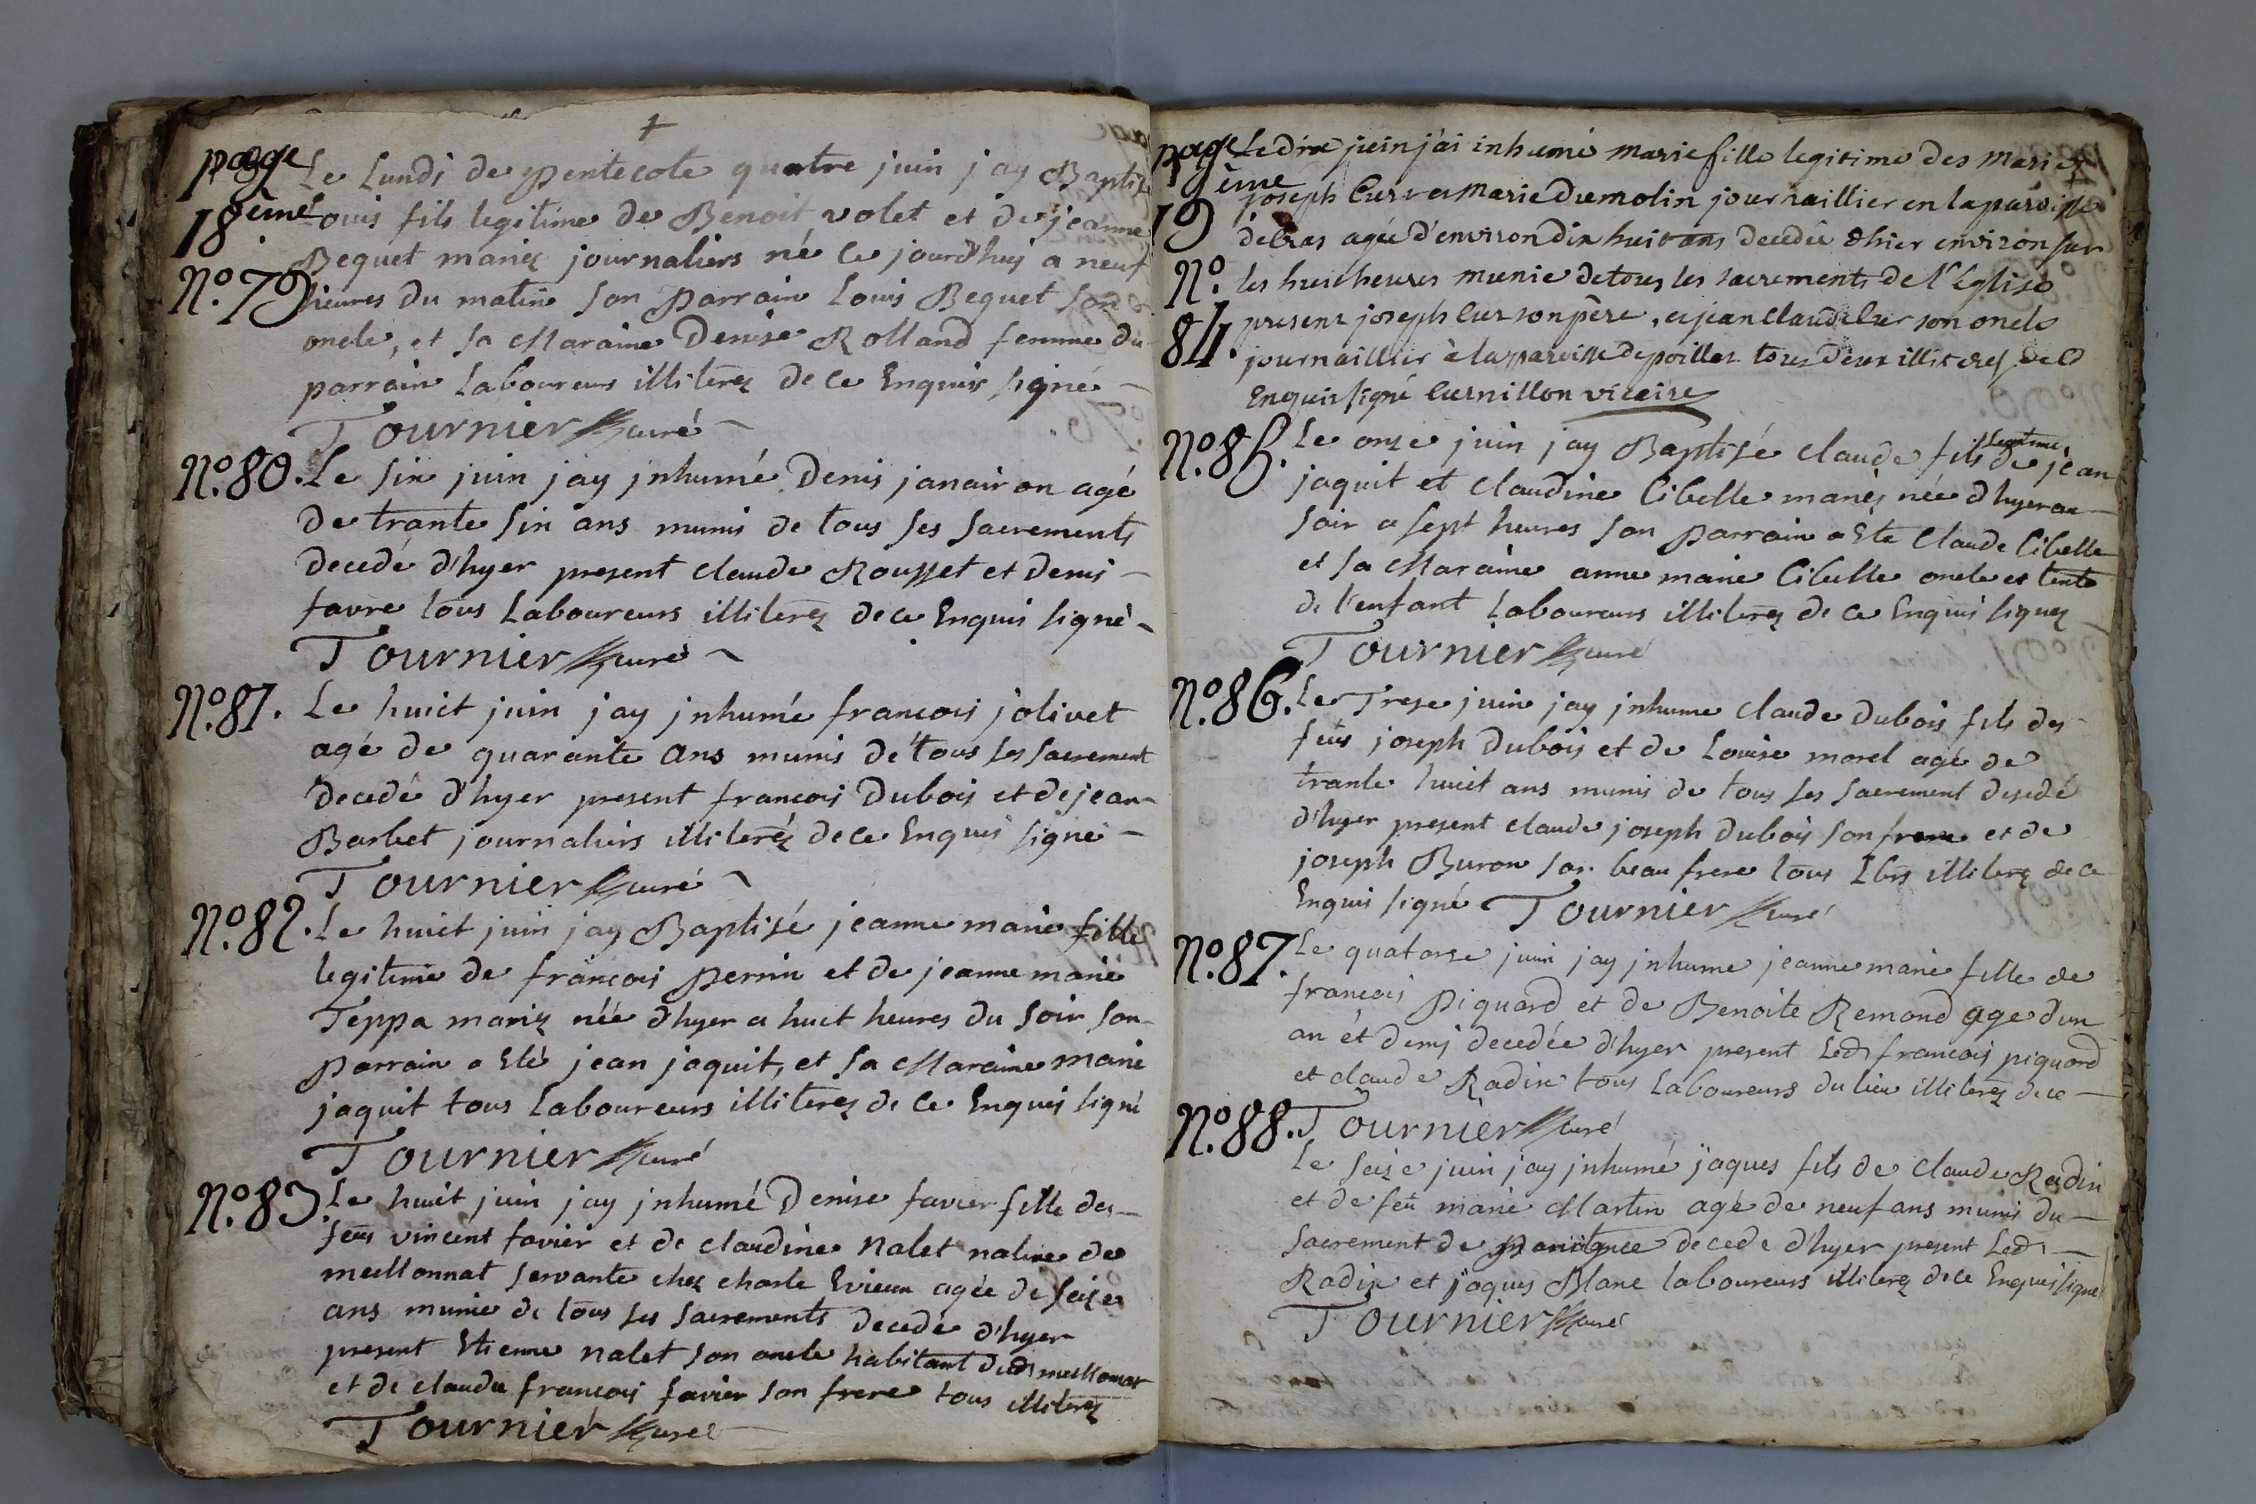 page
18ème
Le Lundi de pentecote quatre juin jay Baptisé
Louis fils legitime de Benoit volet et de jeanne
Bequet mariez journaliers né ce jourdhuy a neuf
N.° 79
heures du matin son parrain Louis Bequet son
oncle, et sa Maraine Denise Rolland femme du
parrain Laboureurs illiterez de ce Enquis signé
Tournier curé
N.° 80. Le six juin jay jnhumé Denis janairon agé
de trante six ans munis de tous ses sacrements
decedé d'hyer present claude Rousset et denis
favre tous Laboureurs illiterez de ce Enquis signé
Tournier curé
N.° 81. Le huict juin jay jnhumé francois jolivet
agé de quarante ans munis de tous ses sacrement
decedé d'hyer present francois Dubois et de jean
Barbet journaliers illiteréz de ce Enquis signé
Tournier curé
N.° 82. Le huict juin jay Baptisé jeanne marie fille
legitime de francois perrin et de jeanne marie
Teppa mariz néé d'hyer a huit heures du soir son
parrain a Eté jean jaquit, et sa Maraine marie
jaquit tous Laboureurs illiterez de ce Enquis signé
Tournier curé
N.° 83 Le huict juin jay jnhumé Denise favier fille des
feus vincent favier et de claudine nalet native de
meillonnat servante chez charle Evieux agée de seize
ans munie de tous ses sacrements decedé d'hyer
present Etienne nalet son oncle habitant dud meillonat
et de claude francois favier son frere tous illiterez
Tournier curé
page
19 ème
Le dix juin j'ai inhumé marie fille legitime des mariez
joseph Cur et marie dumolin journaillier en la paroisse
de agée d'environ dix huit ans decedée d'hier environ sur
N.°
84.
les huit heures munie de tous les sacrements de l'Eglise
present joseph Cur son père, et jean claude Cur son oncle
journaillier à la paroisse de tous deux illiterez de ce
Enquis signé Curnillon vicaire
N.° 85. Le onze juin jay Baptisé claude fils legitime de jean
jaquit et claudine Cibelle mariéz née d'hyer au
soir a sept heures son parrain a Ete claude Cibelle
et sa Maraine anne marie Cibelle oncle et tente
de l'enfant Laboureurs illiterez de ce Enquis signez
Tournier curé
N.° 86. Le Treze juin jay jnhume claude Dubois fils des
feus joseph Dubois et de Louise morel agé de
trante huict ans munis de tous ses sacrement desedé
d'hyer present claude joseph Dubois son frere et de
joseph Buron son beau frere tous Lbrs illiterz de ce
Enquis signé Tournier curé
N.° 87. Le quatorze juin jay jnhume jeanne marie fille de
francois piquard et de Benoite Remond age d'un
an et demj decedée d'hyer present Led francois piquard
et claude Radix tous Laboureurs du lieu illiterez de ce
Tournier curé
N.° 88.
Le seize juin jay jnhumé jaques fils de claude Radix
et de feu marie Martin agé de neuf ans munis du
sacrement de penitance decede d'hyer present Led
Radix et jaques Blanc laboureurs illiterez de ce Enquis signe
Tournier curé